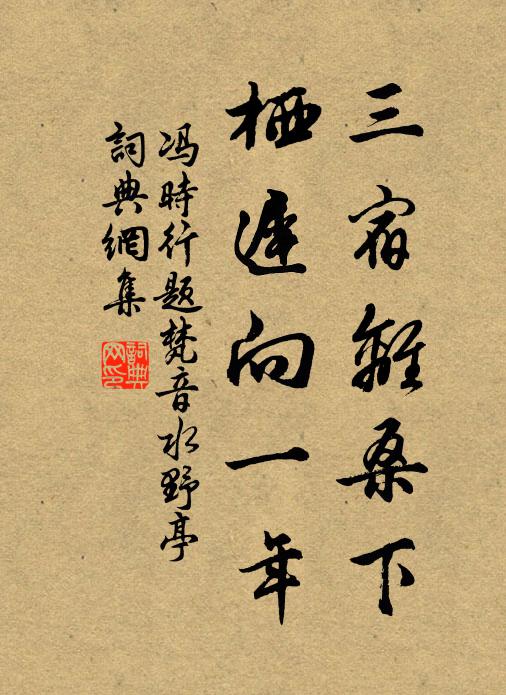 三宿離桑下
栖遲向一年
冯時行题梵音水野亭
詞典網集
詞典
网印